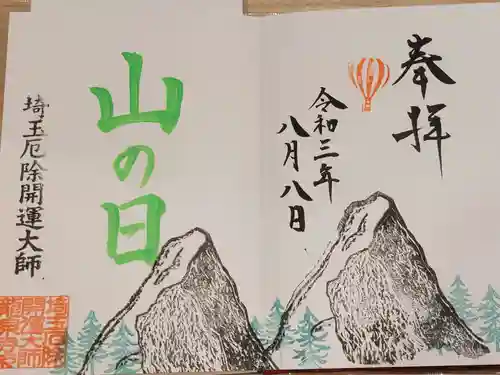 奉拝
令和三年
八月八日
山の日
埼玉厄除開運大師
埼玉厄除
開運大師
龍泉寺